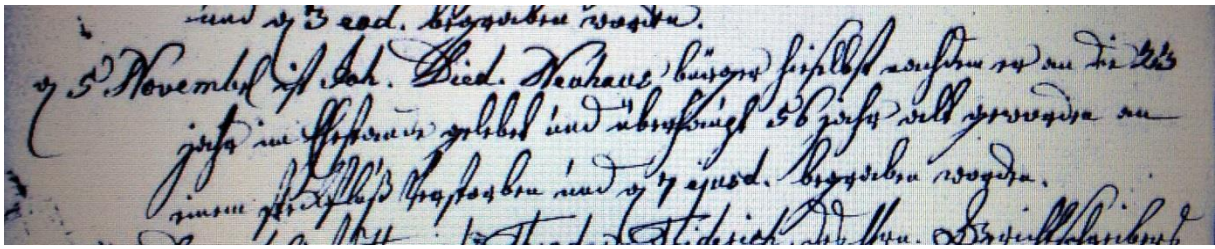 und d 3 eod. begraben worden.
d 5 November ist Joh. Died. Neuhaus bürger hieselbst nachdem er an die 23
jahr im Ehestande gelebet und überhaupt 56 jahr alt geworden an
einem Steckfluß Verstorben und d 7 ejusd. begraben worden.
Gerichtschreibers